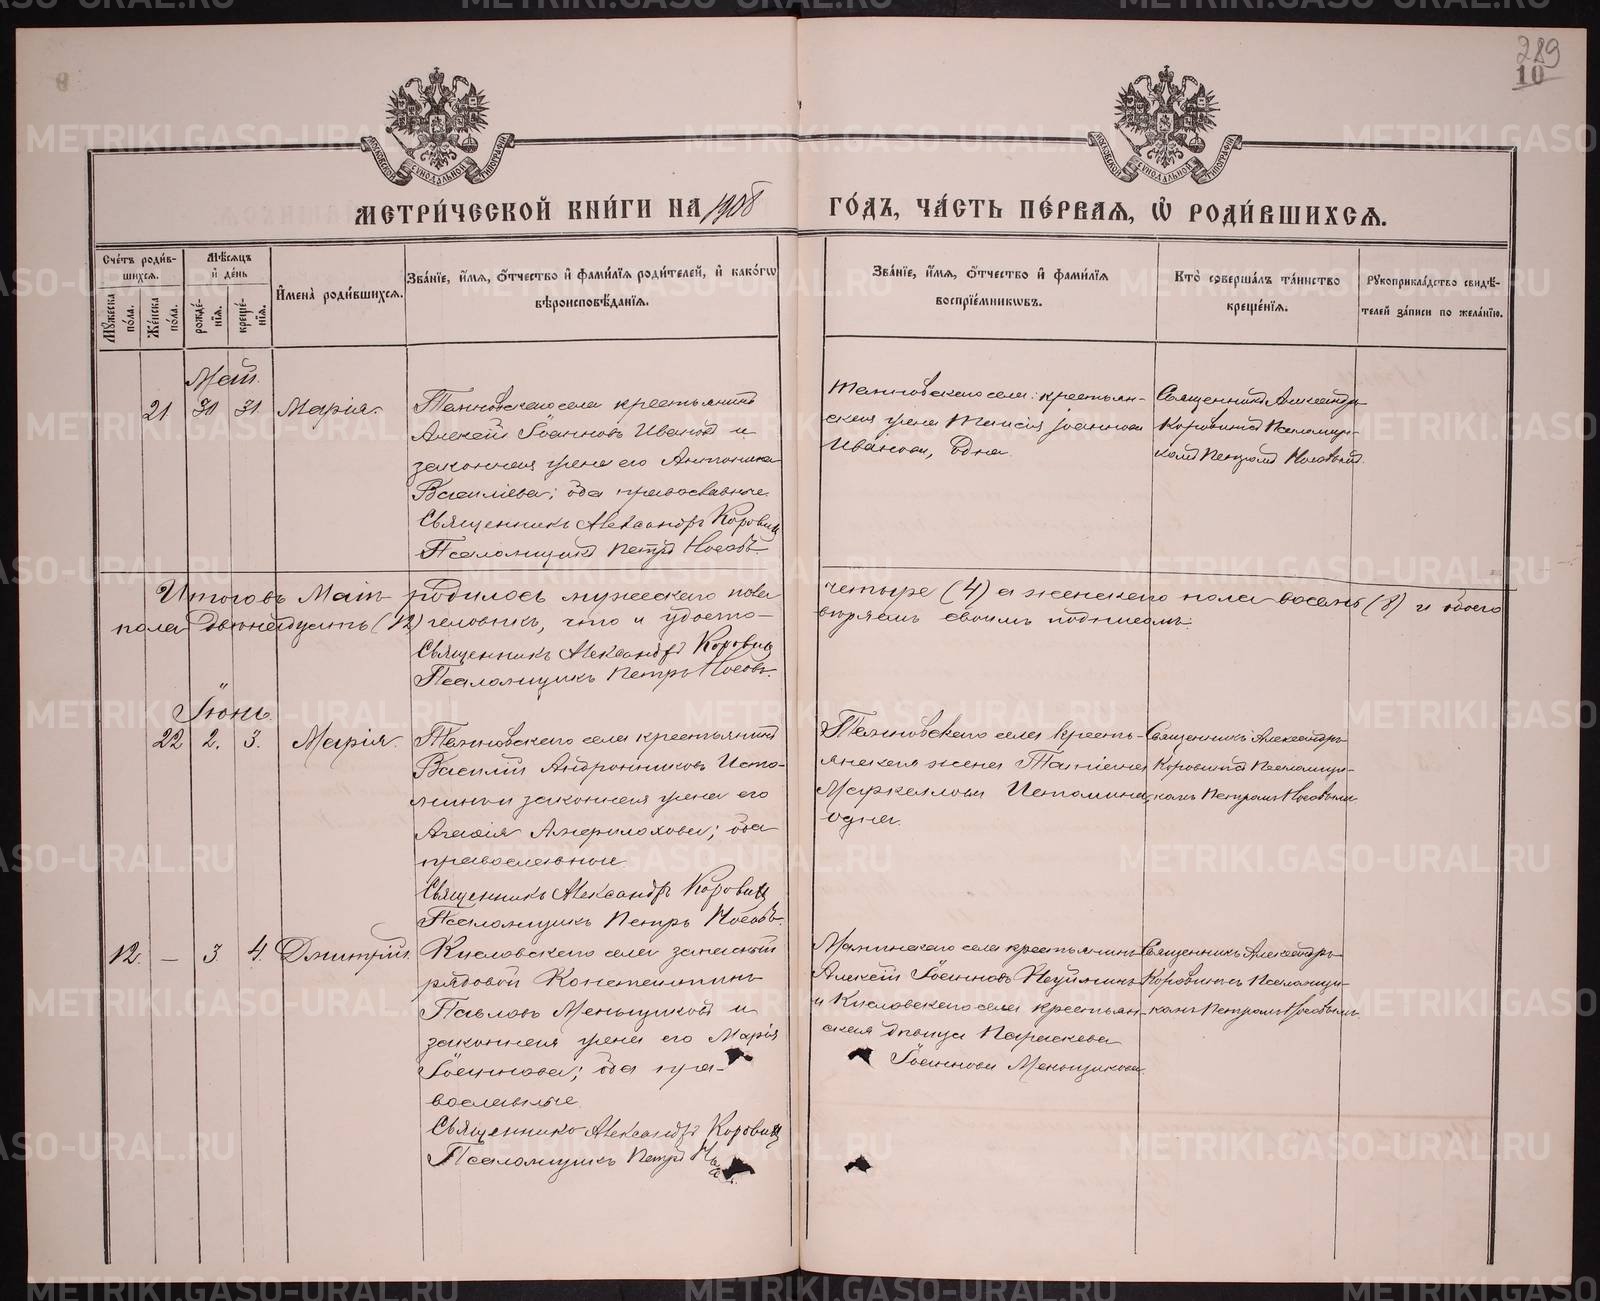 289
10
МЕТРИ́ЧЕСКОЙ КНИ́ГИ НА 1908 ГО́ДЪ, ЧА́СТЬ ПЕ́РВАЯ, Ѡ РОДИ́ВШИХСЯ.
Счетъ родив-
шихся.
Мѣсяцъ
и день
Мужеска
пола.
Женска
пола.
рожде-
нія.
креще-
нія.
Имена родившихся.
Званіе, имя, отчество и фамилія родителей, и какогѡ
вѣроисповѣданія.
Званіе, имя, отчество и фамилія
воспріемникѡвъ.
Кто совершалъ таинство
крещенія.
Рукоприкладство свидѣ-
телей записи по желанію.
Май.
21 31 31 Марія.
села крестьянинъ
Алексій Іоанновъ Ивановъ и
законная жена его Антонина
Василіева; оба православные.
Священникъ Александръ Коровинъ
Псаломщикъ Петръ Носовъ.
села крестьян-
ская жена Таисія Іоаннова
Иванова, одна.
Священникъ Александръ
Коровинъ Псаломщи-
комъ Петромъ Носовымъ.
Итого въ Маѣ родилось мужескаго пола четыре (4) а женскаго пола восемь (8) и обоего
пола двенадцать (12) человѣкъ, что и удосто- вѣряемъ своимъ подписомъ:
Священникъ Александръ Коровинъ
Псаломщикъ Петръ Носовъ.
Іюнь.
22 2. 3. Марія.
села крестьянинъ
Василій Андрониковъ Исто-
минъ и законная жена его
Агафія Амфилохова; оба
православные.
Священникъ Александръ Коровинъ
Псаломщикъ Петръ Носовъ.
села кресть-
янская жена Татіана
Маркеллова Истомина,
одна.
Священникъ Александръ
Коровинъ Псаломщи-
комъ Петромъ Носовымъ
12. — 3 4. Димитрій.
Кисловскаго села запасный
рядовой Константинъ
Павловъ Меньщиковъ и
законная жена его Марія
Іоаннова; оба пра-
вославные.
Священникъ Александръ Коровинъ
Псаломщикъ Петръ
Маминскаго села крестьянинъ
Алексій Іоанновъ Неуйминъ
и Кисловскаго села крестьян-
ская дѣвица Параскева
Іоаннова Меньщикова.
Священникъ Александръ
Коровинъ Псаломщи-
комъ Петромъ Носовымъ.
METRIKI.GASO-URAL.RU